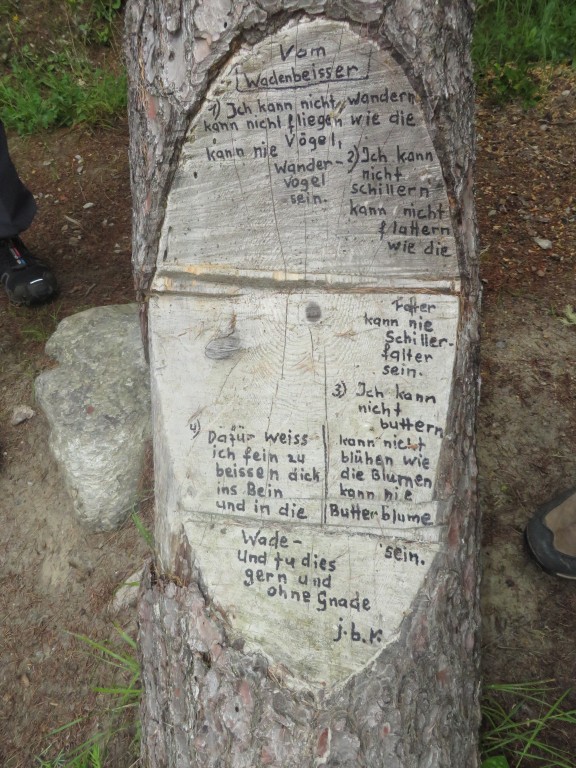 Vom
Wadenbeisser
1) Ich kann nicht wandern
kann nicht fliegen wie die
Vögel,
kann nie
Wander-
vogel
sein.
2) Ich kann
nicht
schillern
kann nicht
flattern
wie die
Falter
kann nie
Schiller-
falter
sein.
3) Ich kann
nicht
buttern
kann nicht
blühen wie
die Blumen
kann nie
Butterblume
sein.
4) Dafür weiss
ich fein zu
beissen dich
ins Bein
und in die
Wade-
und tu dies
gern und
ohne Gnade
j.b.k